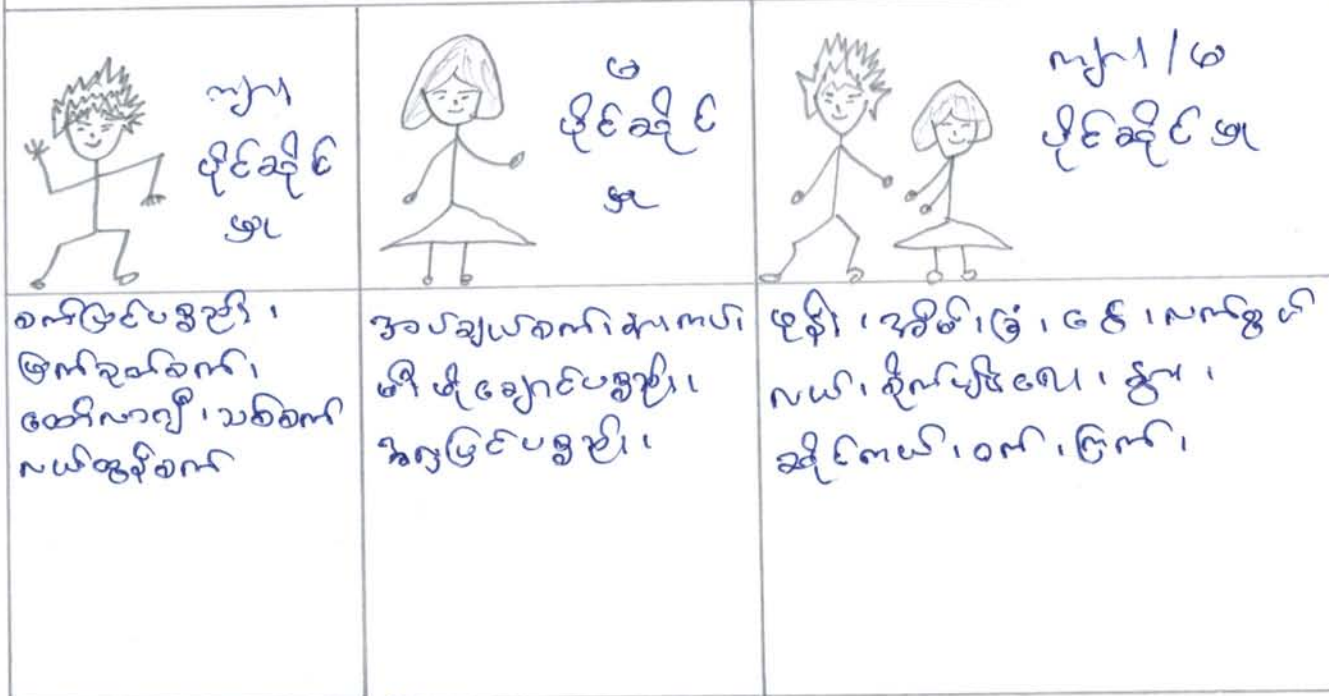 ကျား
ပိုင်ဆိုင်
မှု
မ
ပိုင်ဆိုင်
မှု
ကျား / မ
ပိုင်ဆိုင်မှု
စက်ပြင်ပစ္စည်း၊
မြက်ခုတ်စက်၊
ထော်လာဂျီ၊ သစ်စက်
လယ်ထွန်စက်
အပ်ချုပ်စက်၊
မီးဖိုချောင်ပစ္စည်း၊
အလှပြင်ပစ္စည်း၊
ဖုန်း၊ အိမ်၊ ခြံ၊ ငွေ၊ လက်ဝတ်
လယ်၊ စိုက်ပျိုးရေး၊ နွား၊
ဆိုင်ကယ်၊ ဝက်၊ ကြက်၊